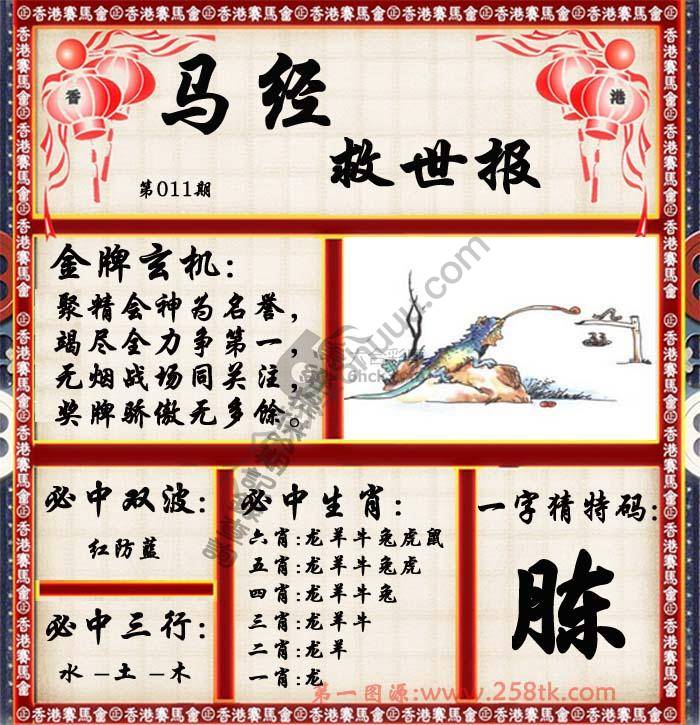 马经
救世报
第011期
香
港
金牌玄机:
聚精会神为名誉,
竭尽全力争第一,
无烟战场同关注,
奖牌骄傲无多馀。
必中双波:
红防蓝
必中三行:
水－土－木
必中生肖:
六肖:龙羊牛兔虎鼠
五肖:龙羊牛兔虎
四肖:龙羊牛兔
三肖:龙羊牛
二肖:龙羊
一肖:龙
一字猜特码:
胨
第一图源:www.258tk.com
香港賽馬會